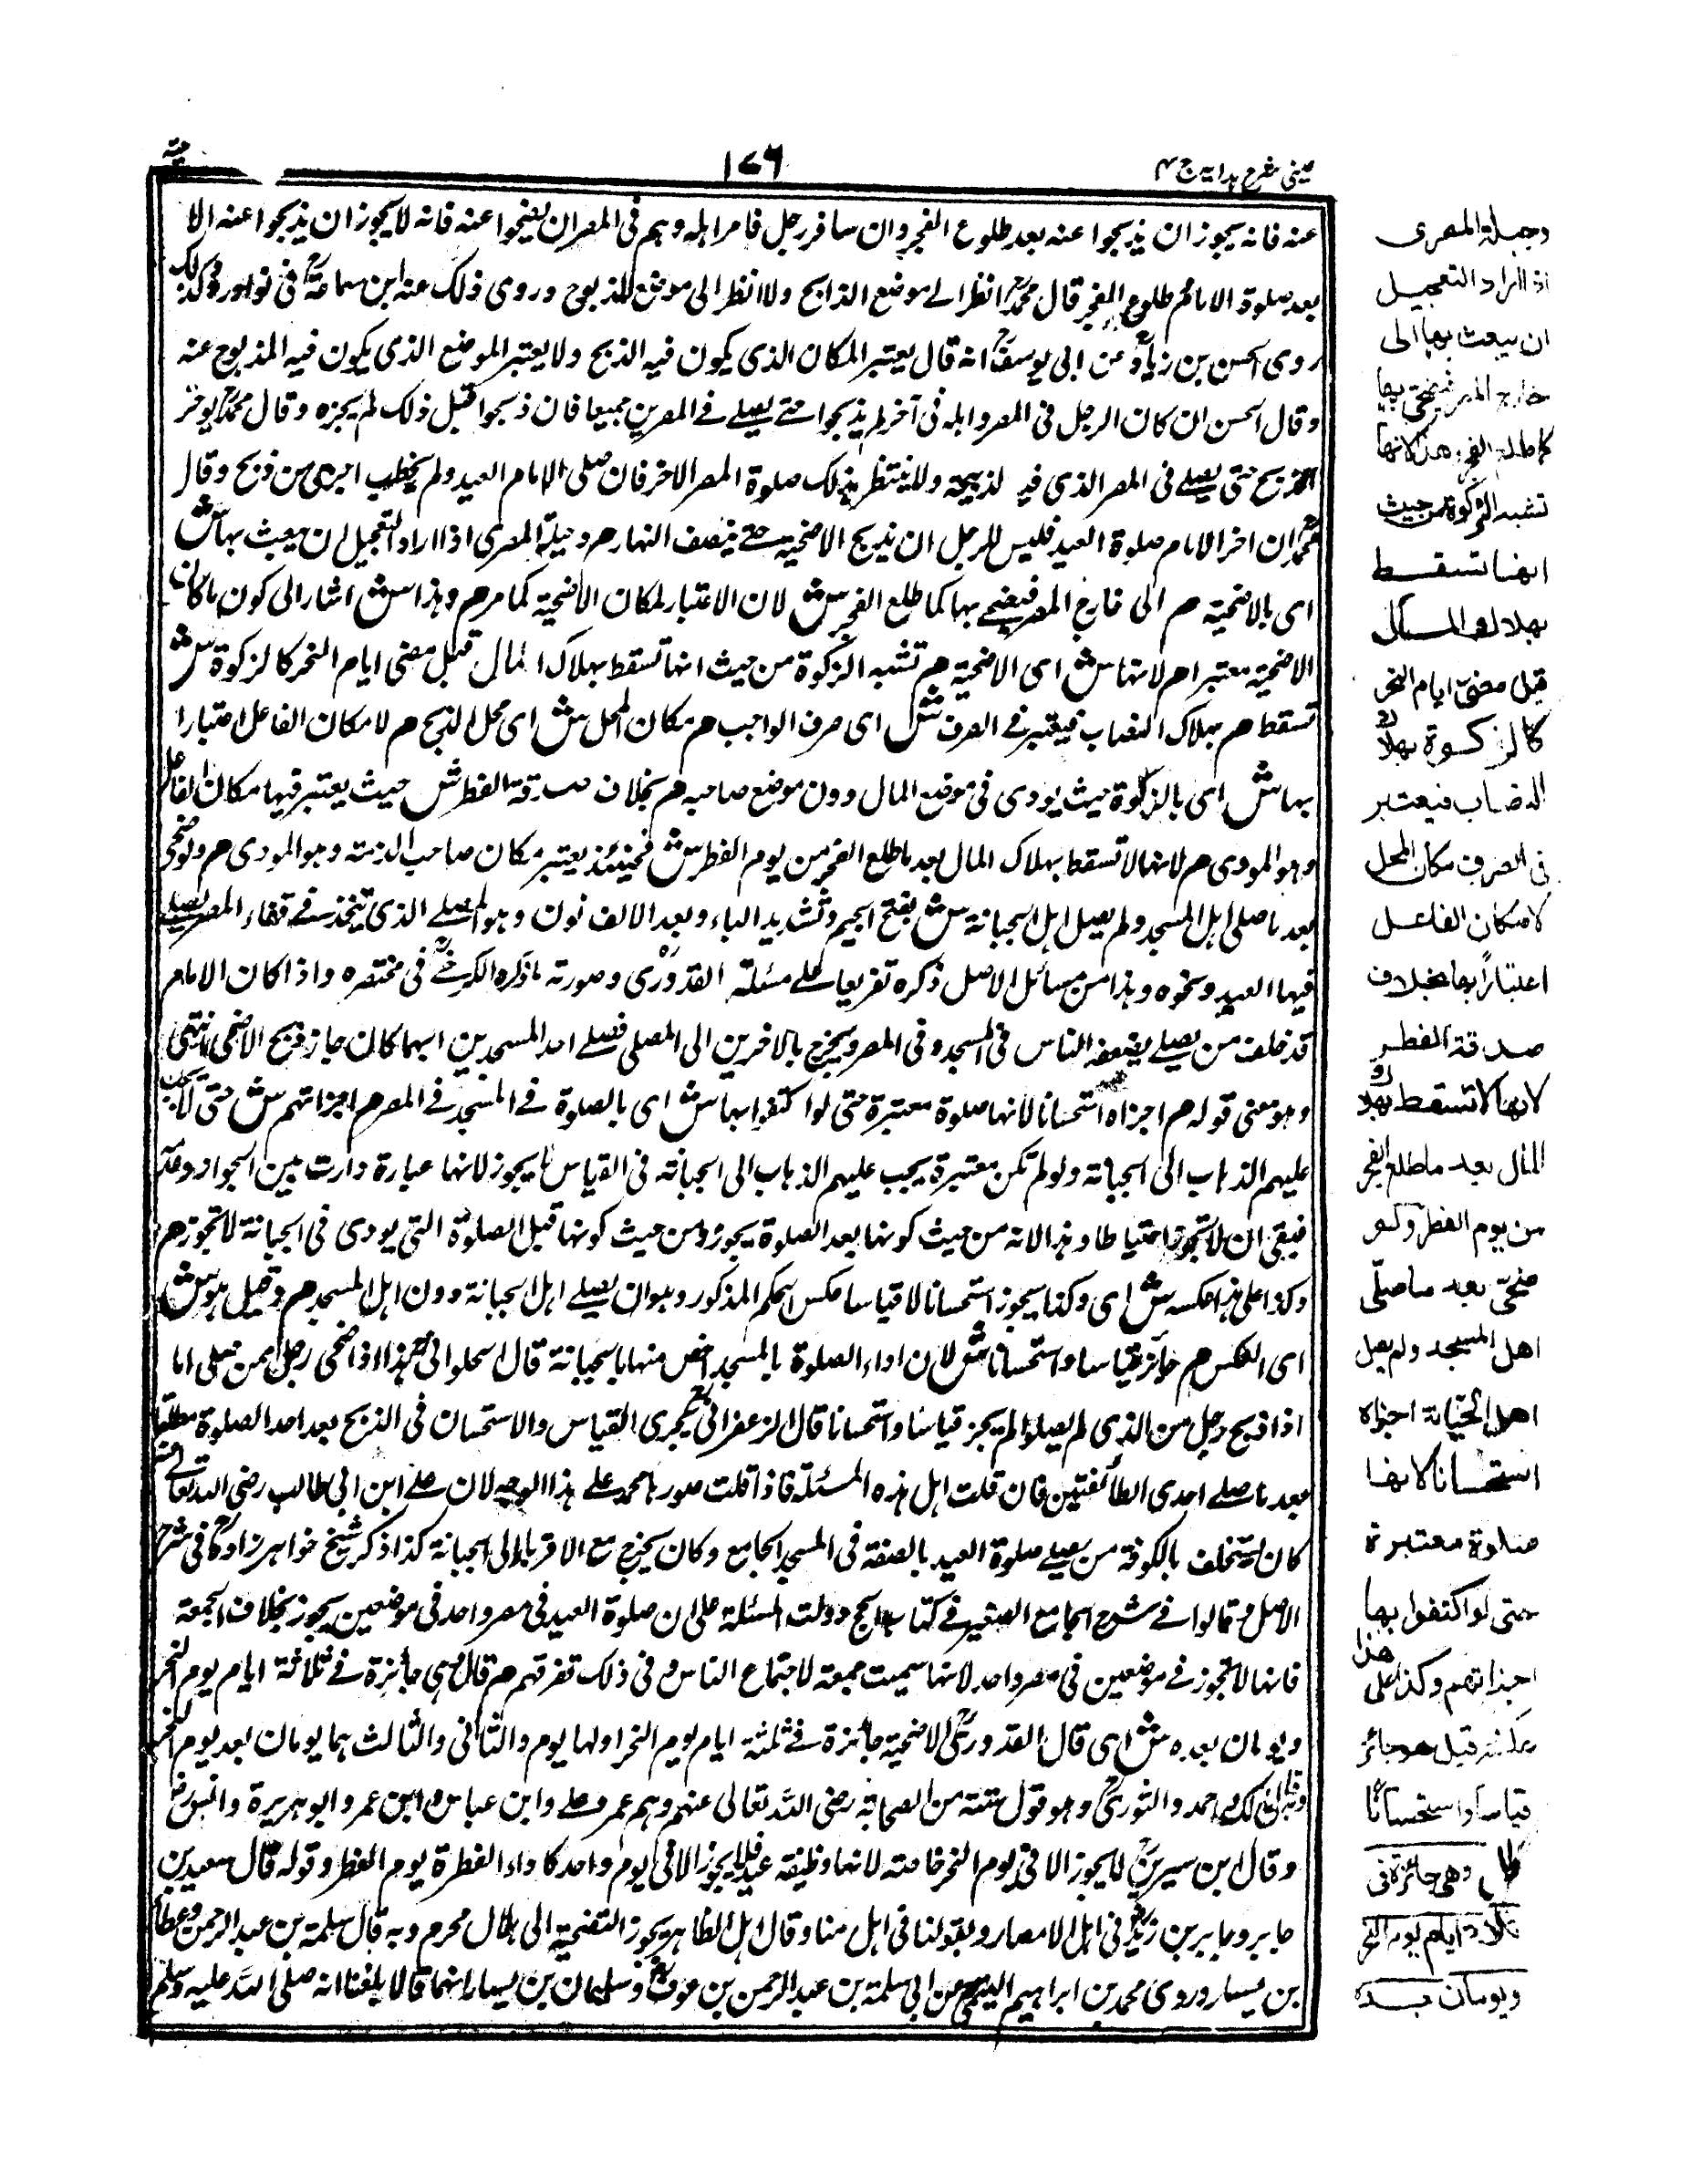 عینی شرح هدایه ج ۴
۱۷۶
عنه فانه يجوز ان يذبحوا عنه بعد طلوع الفجر وان سافر رجل فامر اهله وهم فى المصران يضحوا عنه فانه لا يجوز ان يذبحوا عنه الا
بعد صلوة الامام طلوع الفجر قال محمدؒ انظر الے موضع الذابح ولا انظر الى موضع المذبوح وروى ذلك عنه ابن سماعةؒ فى نوادره وكذلك
روى الحسن بن زيادؒ عن ابى يوسفؒ انه قال يعتبر المكان الذى يكون فيه الذبح ولا يعتبر الموضع الذى يكون فيه المذبوح عنه
وقال الحسن ان كان الرجل فى المصر واهله فى آخر لم يذبحوا حتے يصلے فے المصرين جميعا فان ذبحوا قبل ذلك لم يجزه وقال محمدؒ يوخر
الذبح حتى يصلے فى المصر الذى فيه الذبيحة ولا ينتظر بذلك صلوة المصر الاخر فان صلى الامام العيد ولم يخطب اجزى من ذبح وقال
محمدؒ ان اخر الامام صلوة العيد فليس للرجل ان يذبح الاضحية حتے ينتصف النهار م وحيلة المصرى اذا اراد التعجيل ان يبعث بها ش
اى بالاضحية م الى خارج المصر فيضحے بها كما طلع الفجر ش لان الاعتبار لمكان الاضحية كما مر م وهذا ش اشار الى كون مكان
الاضحية معتبرا م لانها ش اى الاضحية م تشبه الزكوة من حيث انها تسقط بهلاك المال قبل مضى ايام النحر كالزكوة ش
تسقط م بهلاك النصاب فيعتبر فے الصرف ش اى صرف الواجب م مكان المحل ش اى محل الذبح م لا مكان الفاعل اعتبارا
بها ش اى بالزكوة حيث يودى فى موضع المال دون موضع صاحبه م بخلاف صدقة الفطر ش حيث يعتبر فيها مكان الفاعل
وهو المودى م لانها لا تسقط بهلاك المال بعد ما طلع الفجر من يوم الفطر ش فحينئذ يعتبر مكان صاحب الذمة وهو المودى م ولو ضحى
بعد ما صلى اهل المسجد ولم يصل اهل الجبانة ش بفتح الجيم وتشديد الباء وبعد الالف نون وهو المصلے الذى يتخذ فے فناء المصر يصلے
فيها العيد ونحوه وهذا من مسائل الاصل ذكره تفريعا علے مسئلة القدورىؒ وصورته ما ذكره الكرخےؒ فى مختصره واذا كان الامام
قد خلف من يصلے بضعفه الناس فى المسجد وفى المصر ويخرج بالاخرين الى المصلى فصلے احد المسجدين ايهما كان جاز ذبح الاضحى
وهو معنى قوله م اجزاه استحسانا لانها صلوة معتبرة حتى لو اكتفوا بها ش اى بالصلوة فے المسجد فے المصر م اجزاتهم ش حتى لا يجب
عليهم الذهاب الى الجبانة ولو لم تكن معتبرة يجب عليهم الذهاب الى الجبانة فى القياس لا يجوز لانها عبادة دارت بين الجواز وعدمه
فينبغى ان لا تجوز احتياطا وهذا لانه من حيث كونها بعد الصلوة يجوز ومن حيث كونها قبل الصلوة التى يودى فى الجبانة لا تجوز م
وكذا على هذا عكسه ش اى وكذا يجوز استحسانا لا قياسا عكس الحكم المذكور وهو ان يصلے اهل الجبانة دون اهل المسجد م وقيل هو ش
اى العكس م جائز قياسا واستحسانا ش لان اداء الصلوة بالمسجد افضل منها بالجبانة قال الحلوانىؒ هذا اذا ضحى رجل ممن صلى اما
اذا ذبح رجل من الذى لم يصلوا لم يجز قياسا واستحسانا قال الزعفرانىؒ يجرى القياس والاستحسان فى الذبح بعد احد الصلوة مطلقا
بعد ما صلے احدى الطائفتين فان قلت اهل هذه المسئلة فاذا قلت صورها محمد علے هذا الوجه لان علے ابن ابى طالب رضى الله تعالى عنه
كان يستخلف بالكوفة من يصلے صلوة العيد بالضعفة فى المسجد الجامع وكان يخرج مع الاقرباء الى الجبانة كذا ذكر شيخ خواهر زادهؒ فى شرح
الاصل وقالوا فے شرح الجامع الصغير فے كتاب الحج دولت المسئلة على ان صلوة العيد فى مصر واحد فى موضعين يجوز بخلاف الجمعة
فانها لا تجوز فے موضعين فى مصر واحد لانها سميت جمعة لاجتماع الناس وفى ذلك تفرقتهم م قال وهى جائزة فے ثلاثة ايام يوم النحر
ويومان بعده ش اى قال القدورىؒ الاضحية جائزة فے ثلثة ايام يوم النحر اولها يوم والثانى والثالث هما يومان بعد يوم النحر
وبه قال مالك واحمد والثورىؒ وهو قول ستة من الصحابة رضى الله تعالى عنهم وهم عمر وعلے وابن عباس وابن عمر وابو هريرة وانسؓ
وقال ابن سيرينؒ لا يجوز الا فى يوم النحر خاصة لانها وظيفة عيد فلا يجوز الا فى يوم واحد كاداء الفطرة يوم الفطر وقوله قال سعيد بن
جابر وجابر بن زيدؒ فى اهل الامصار وبقولنا فى اهل منا وقال اهل الظاهر يجوز التضحية الى هلال محرم وبه قال سلمة بن عبد الرحمن وعطاء
بن يسار وروى محمد بن ابراهيم التيمى عن ابى سلمة بن عبد الرحمن بن عوفؓ وسليمان بن يسار انهما قالا بلغنا انه صلى الله عليه وسلم
وحيلة المصرى
اذا اراد التعجيل
ان يبعث بها الى
خارج المصر فيضحى بها
كما طلع الفجر وهذا لانها
تشبه الزكوة من حيث
انها تسقط
بهلاك المال
قبل مضى ايام النحر
كالزكوة بهلاك
النصاب فيعتبر
فى الصرف مكان المحل
لا مكان الفاعل
اعتبارا بها بخلاف
صدقة الفطر
لانها لا تسقط بهلاك
المال بعد ما طلع الفجر
من يوم الفطر ولو
ضحى بعد ما صلى
اهل المسجد ولم يصل
اهل الجبانة اجزاه
استحسانا لانها
صلوة معتبرة
حتى لو اكتفوا بها
اجزاتهم وكذا على هذا
عكسه وقيل هو جائز
قياسا واستحسانا
قال وهى جائزة فى
ثلاثة ايام يوم النحر
ويومان بعده